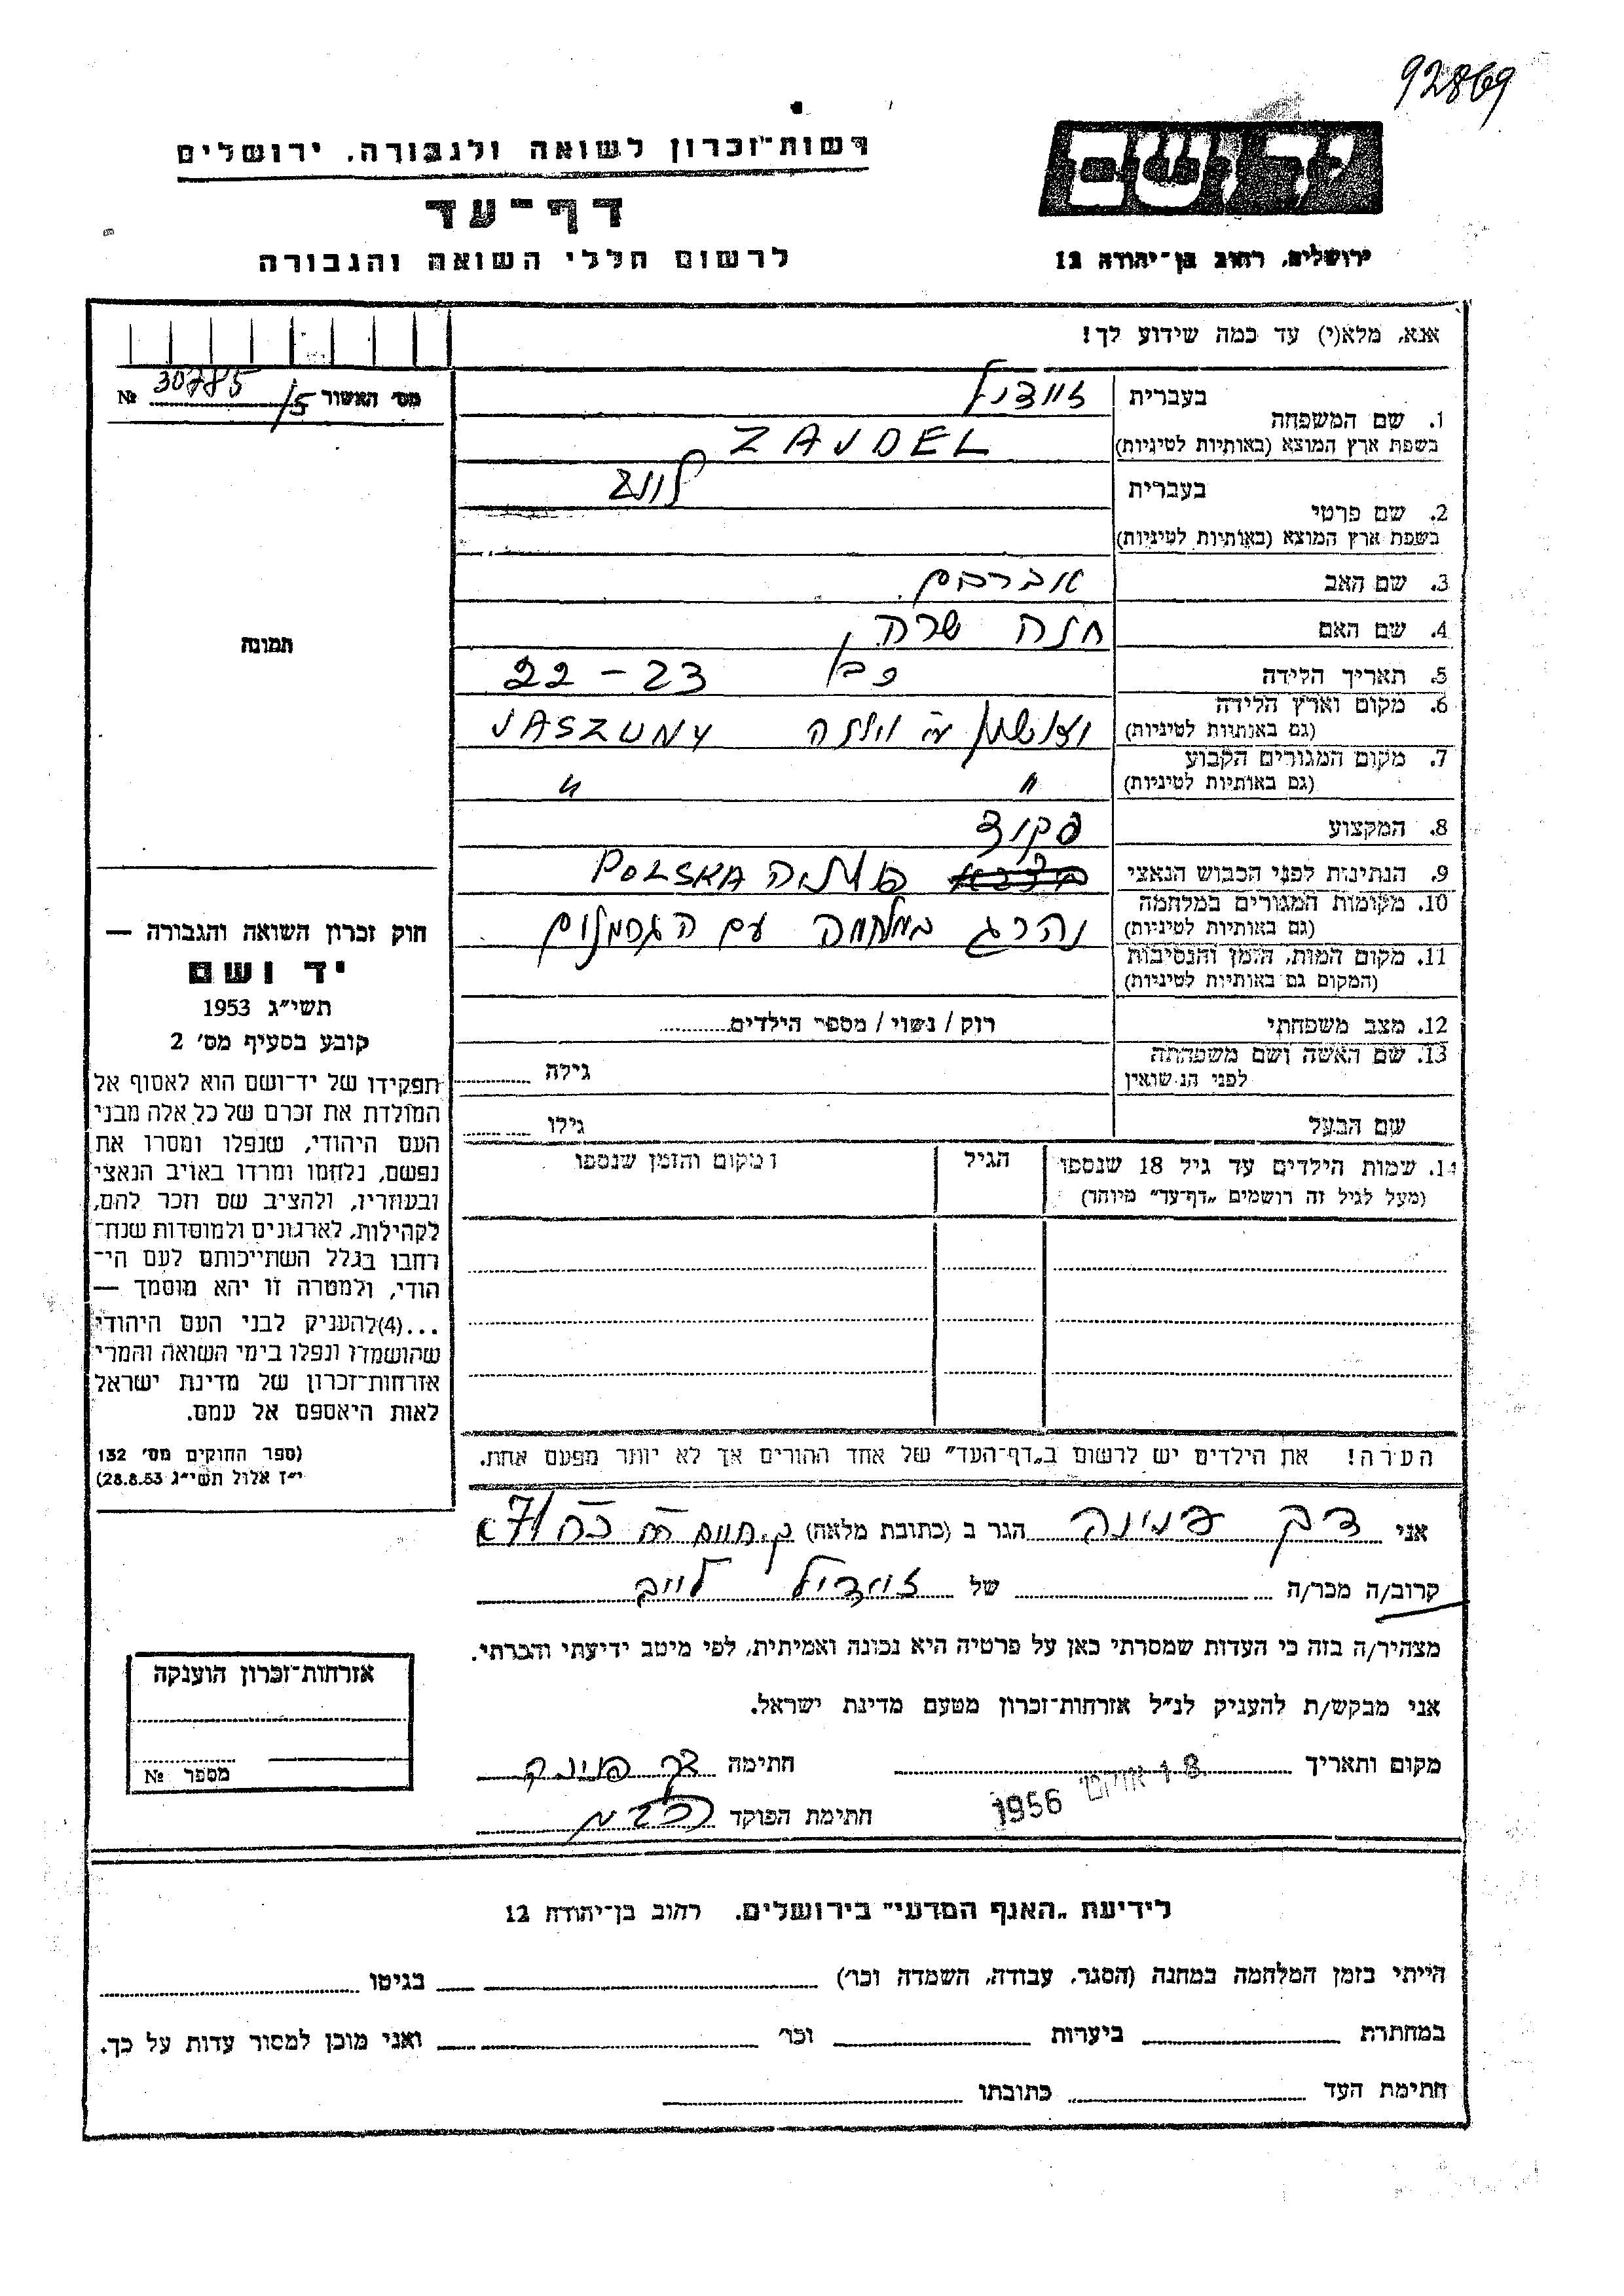 92869
רשות־זכרון לשואה ולגבורה, ירושלים
יד ושם
דף־עד
לרשום חללי השואה והגבורה
ירושלים, רחוב בן־יהודה 12
אנא, מלא(י) עד כמה שידוע לך!
מס׳ האשור 30785/5 №
1. שם המשפחה
בעברית זיידל
בשפת ארץ המוצא (באותיות לטיניות) ZAJDEL
2. שם פרטי
בעברית לייב
בשפת ארץ המוצא (באותיות לטיניות)
3. שם האב אברהם
4. שם האם חנה שרה
5. תאריך הלידה 22 – 23
6. מקום וארץ הלידה
(גם באותיות לטיניות) וילנה JASZUNY
7. מקום המגורים הקבוע
(גם באותיות לטיניות) " "
8. המקצוע פקיד
9. הנתינות לפני הכבוש הנאצי פולניה POLSKA
10. מקומות המגורים במלחמה
(גם באותיות לטיניות) נהרג במלחמה עם הגרמנים
11. מקום המות, הזמן והנסיבות
(המקום גם באותיות לטיניות)
12. מצב משפחתי רוק / נשוי / מספר הילדים
13. שם האשה ושם משפחתה
לפני הנשואין גילה
שם הבעל גילו
14. שמות הילדים עד גיל 18 שנספו הגיל המקום והזמן שנספו
(מעל לגיל זה רושמים „דף־עד״ מיוחד)
הערה! את הילדים יש לרשום ב„דף־העד״ של אחד ההורים אך לא יותר מפעם אחת.
תמונה
חוק זכרון השואה והגבורה —
יד ושם
תשי״ג 1953
קובע בסעיף מס׳ 2
תפקידו של יד־ושם הוא לאסוף אל
המולדת את זכרם של כל אלה מבני
העם היהודי, שנפלו ומסרו את
נפשם, נלחמו ומרדו באויב הנאצי
ובעוזריו, ולהציב שם וזכר להם,
לקהילות, לארגונים ולמוסדות שנח־
רבו בגלל השתייכותם לעם הי־
הודי, ולמטרה זו יהא מוסמך —
...(4)להעניק לבני העם היהודי
שהושמדו ונפלו בימי השואה והמרי
אזרחות־זכרון של מדינת ישראל
לאות היאספם אל עמם.
(ספר החוקים מס׳ 132
י״ז אלול תשי״ג 28.8.53)
אני דבן פנינה הגר ב (כתובת מלאה) ק. חיים
קרוב/ה מכר/ה של זיידל לייב
מצהיר/ה בזה כי העדות שמסרתי כאן על פרטיה היא נכונה ואמיתית, לפי מיטב ידיעתי והכרתי.
אני מבקש/ת להעניק לנ״ל אזרחות־זכרון מטעם מדינת ישראל.
מקום ותאריך 18 אוקט׳ 1956 חתימה דבן פנינה
חתימת הפוקד
אזרחות־זכרון הוענקה
מספר №
לידיעת „האגף המדעי״ בירושלים. רחוב בן־יהודה 12
הייתי בזמן המלחמה במחנה (הסגר, עבודה, השמדה וכו׳) בגיטו
במחתרת ביערות וכו׳ ואני מוכן למסור עדות על כך.
חתימת העד כתובתו